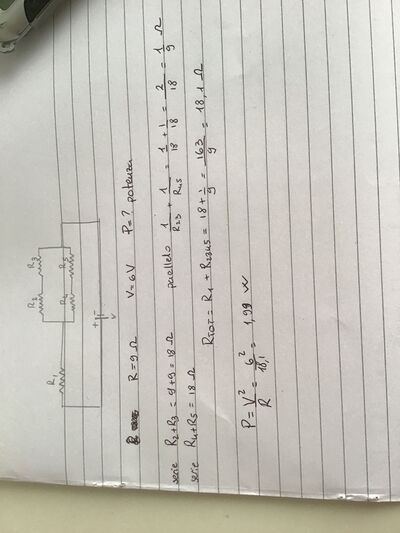 R1
R2 R3
R4 R5
+ -
V
R = 9 Ω V = 6V P = ? potenza
serie R2+R3 = 9+9 = 18 Ω parallelo 1/R23 + 1/R45 = 1/18 + 1/18 = 2/18 = 1/9 Ω
serie R4+R5 = 18 Ω
RTOT = R1 + R2345 = 18 + 1/9 = 163/9 = 18,1 Ω
P = V²/R = 6²/18,1 = 1,99 W